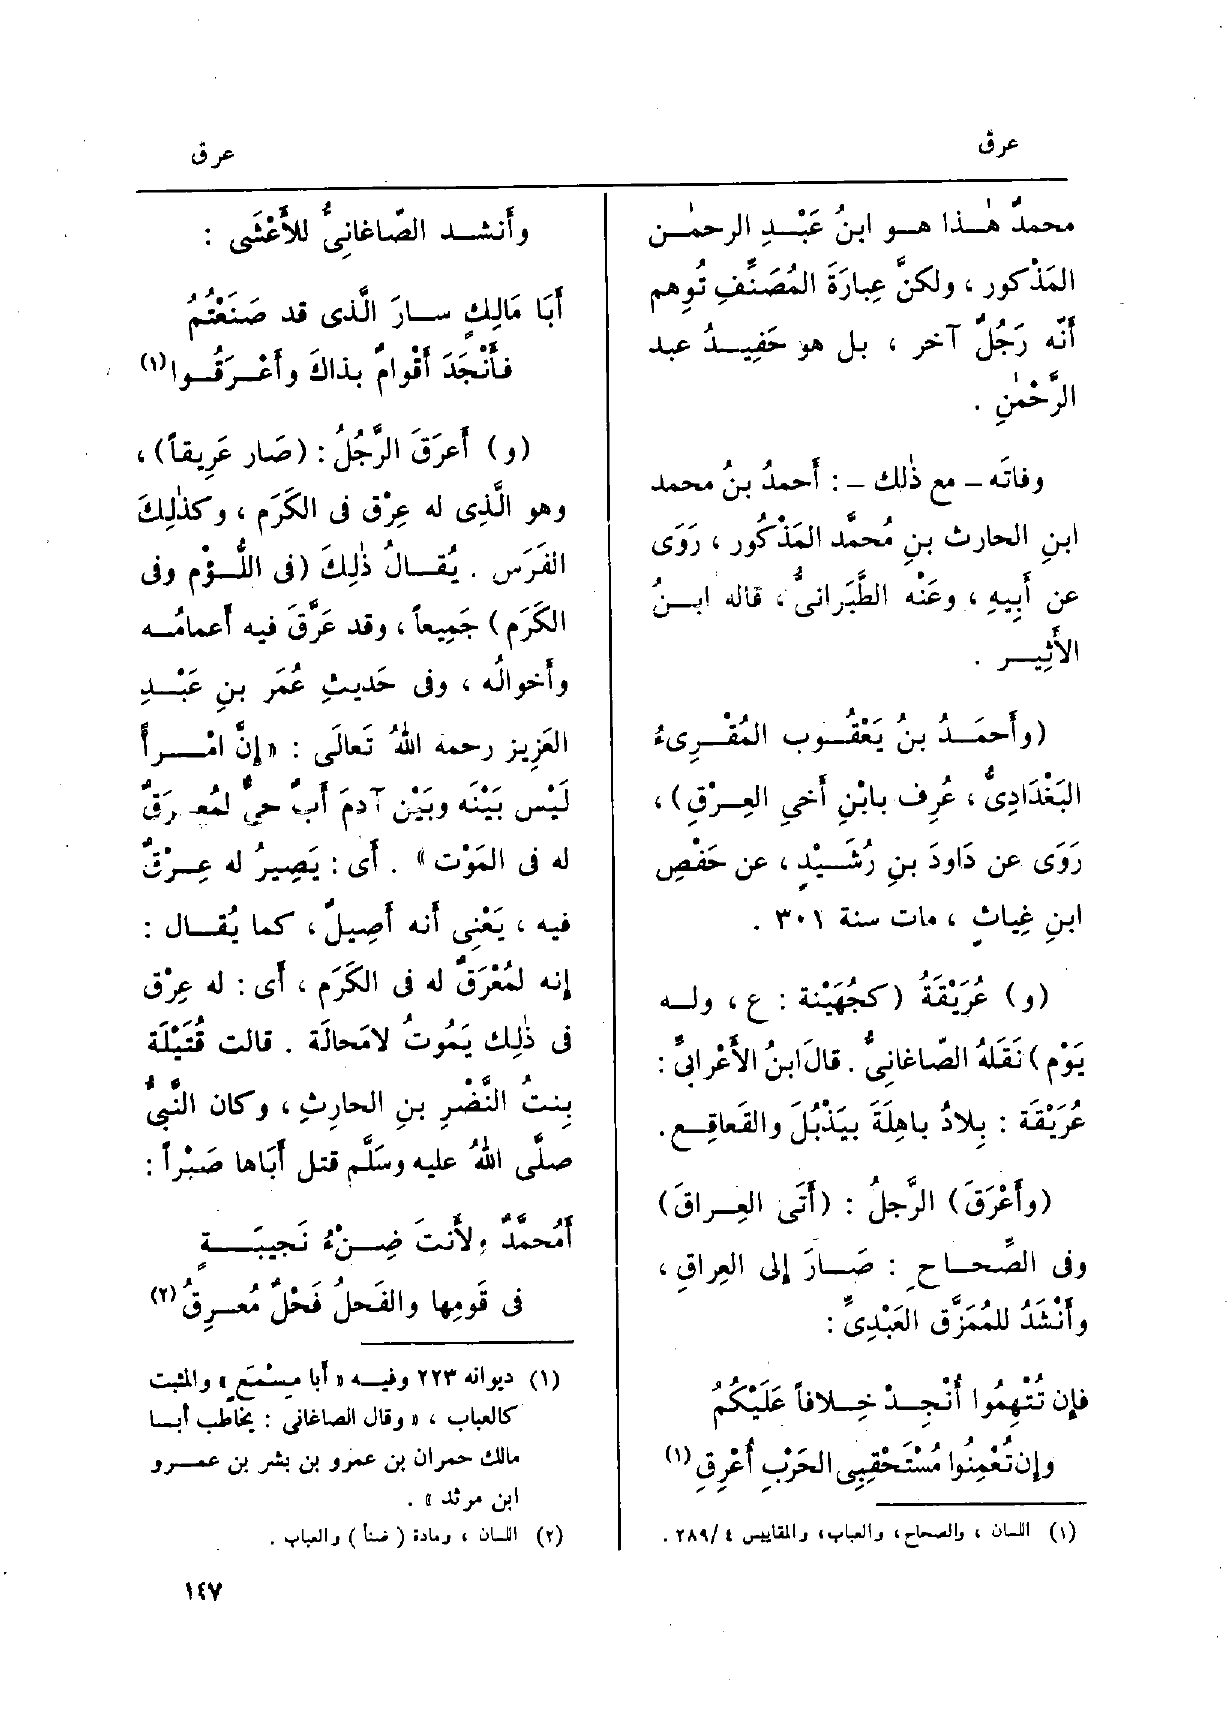 عرق
عرق
محمدٌ هٰـذا هـو ابنُ عَبْـدِ الرحمٰـن
المَذْكور ، ولكنَّ عِبارَةَ المُصَنِّفِ تُوهِم
أَنَّه رَجُلٌ آخر ، بل هو حَفِيـدُ عبد
الرَّحْمٰنِ .
وفاتَه – مع ذٰلك – : أَحمدُ بنُ محمد
ابنِ الحارث بنِ مُحمَّد المَذْكُور ، رَوَى
عن أَبِيهِ ، وعَنْه الطَّبَرانىُّ ، قاله ابـنُ
الأَثِيـر .
(وأَحمَـدُ بنُ يَعْقُـوب المُقْـرِىءُ
البَغْدَادِىُّ ، عُرِف بابْنِ أَخىِ العِـرْقِ) ،
رَوَى عن دَاودَ بنِ رُشَـيْدٍ ، عن حَفْصِ
ابنِ غِياثٍ ، مات سنة ٣٠١ .
(و) عُرَيْقَةُ (كجُهَيْنة : ع ، ولـه
يَوْم) نَقَلهُ الصّاغانىُّ . قالَ ابنُ الأَعْرابىِّ :
عُرَيْقَة : بِلادُ باهِلَةَ بيَذْبُلَ والقَعاقِـع .
(وأَعْرَقَ) الرَّجلُ : (أَتَى العِـراقَ)
وفى الصِّحـاحِ : صَـارَ إلى العِراقِ ،
وأَنْشَدُ للمُمَزَّق العَبْدِىِّ :
فإِن تُتْهِمُوا أُنْجِـدْ خِـلافاً عَلَيْكُمُ
وإِن تُعْمِنُوا مُسْتَحْقِبِى الحَرْبِ أُعْرِقِ (١)
(١) اللسان ، والصحاح ، والعباب ، والمقاييس ٤/٢٨٩ .
وأَنشـد الصّاغانىُّ للأَعْشَى :
أَبَا مَالِكٍ سـارَ الَّذى قد صَنَعْتُمُ
فأَنْجَدَ أَقْوامٌ بذاكَ وأَعْـرَقُـوا (١)
(و) أَعرَقَ الرَّجُلُ : (صَار عَرِيقاً) ،
وهو الَّذِى له عِرْق فى الكَرَم ، وكذٰلِكَ
الفَرَس . يُقـالُ ذٰلِكَ (فى اللُّـؤْم وفى
الكَرَم) جَمِيعاً ، وقد عَرَّقَ فيه أَعمامُـه
وأَخوالُه ، وفى حَديثِ عُمَر بنِ عَبْـدِ
العَزِيز رحمه اللهُ تَعالَى : « إِنَّ امْـرأً
لَيْس بَيْنَه وبَيْن آدمَ أَبٌ حىٌّ لمُعـرَقٌ
له فى المَوْت » . أَى : يَصِيرُ له عِـرْقٌ
فيه ، يَعْنِى أَنه أَصِيلٌ ، كما يُقـال :
إنه لمُعْرَقٌ له فى الكَرَم ، أَى : له عِرْق
فى ذٰلِك يَمُوتُ لامَحالَة . قالت قُتَيْلَة
بِنتُ النَّضْرِ بنِ الحارِثِ ، وكان النَّبىُّ
صلَّى اللهُ عليه وسَلَّم قتل أَبَاها صَبْراً :
أَمُحمَّدٌ ولأَنتَ ضِـنْءُ نَجيبَـةٍ
فى قَومِها والفَحلُ فَحْلٌ مُعـرِقُ (٢)
(١) ديوانه ٢٢٣ وفيـه « أبا مِسْمَعٍ » والمثبت
كالعباب ، « وقال الصاغانى : يخاطب أبـا
مالك حمران بن عمرو بن بشر بن عمـرو
ابن مرثد » .
(٢) اللسان ، ومادة ( ضنأ ) والعباب .
١٤٧